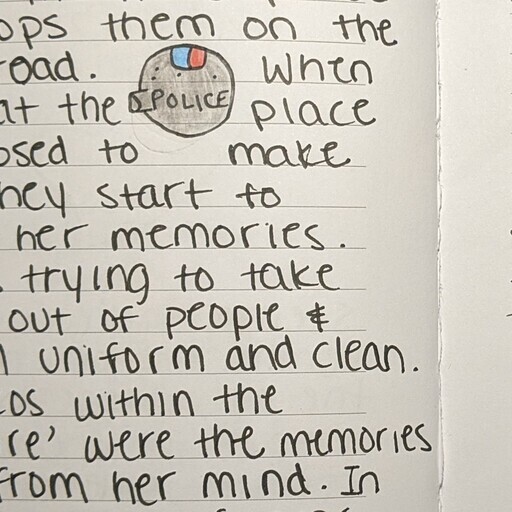 ops them on the
oad. When
at the POLICE place
osed to make
hey start to
her memories.
trying to take
out of people &
uniform and clean.
os within the
re' were the memories
from her mind. In